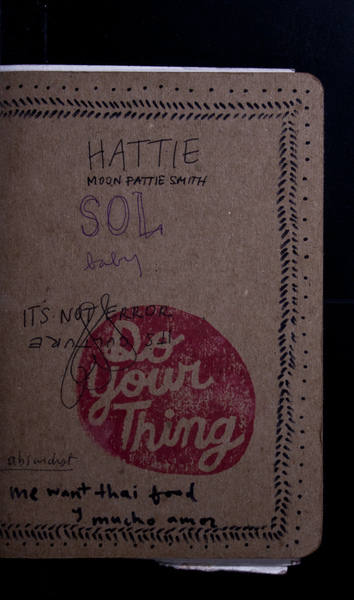 HATTIE
MOON PATTIE SMITH
SOL
baby
IT'S NOT ERROR
IT'S
Do
Your
Thing
absurdist
me want thai food
y mucho amor